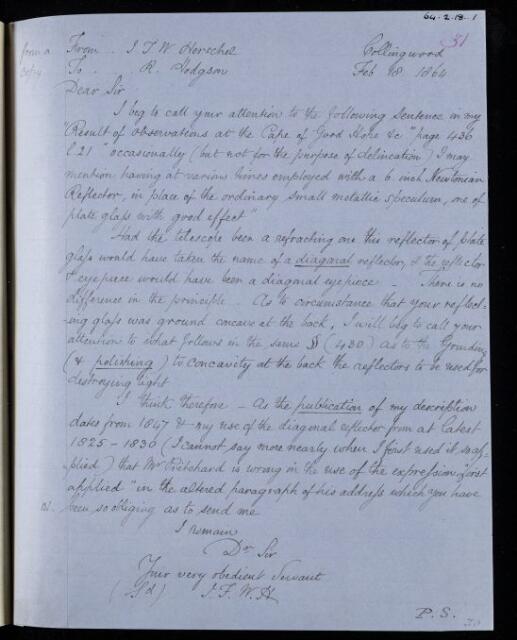 64-2-18-1
31
from a
copy
From . J F W Herschel Collingwood
To . . R. Hodgson Feb 18. 1864
Dear Sir
I beg to call your attention to the following sentence in my
"Result of observations at the Cape of Good Hope &c" page 436
l. 21 "occasionally (but not for the purpose of delineation) I may
mention having at various times employed with a 6 inch Newtonian
Reflector, in place of the ordinary small metallic speculum, one of
plate glass with good effect"
Had the telescope been a refracting one this reflector of plate
glass would have taken the name of a diagonal reflector, & the reflector
& eyepiece would have been a diagonal eyepiece – There is no
difference in the principle. As to circumstance that your reflect-
-ing glass was ground concave at the back, I will beg to call your
attention to what follows in the same § (430) as to the Grinding
(& polishing) to concavity at the back the reflectors to be used for
destroying light
I think therefore – As the publication of my description
dates from 1847 & my use of the diagonal reflector from at latest
1825 – 1836 (I cannot say more nearly when I first used it so ap-
-plied) that Mr Pritchard is wrong in the use of the expression "first
applied" in the altered paragraph of his address which you have
been so obliging as to send me
I remain
Dr Sir
Your very obedient Servant
(Sd) J. F. W. H
P.S.